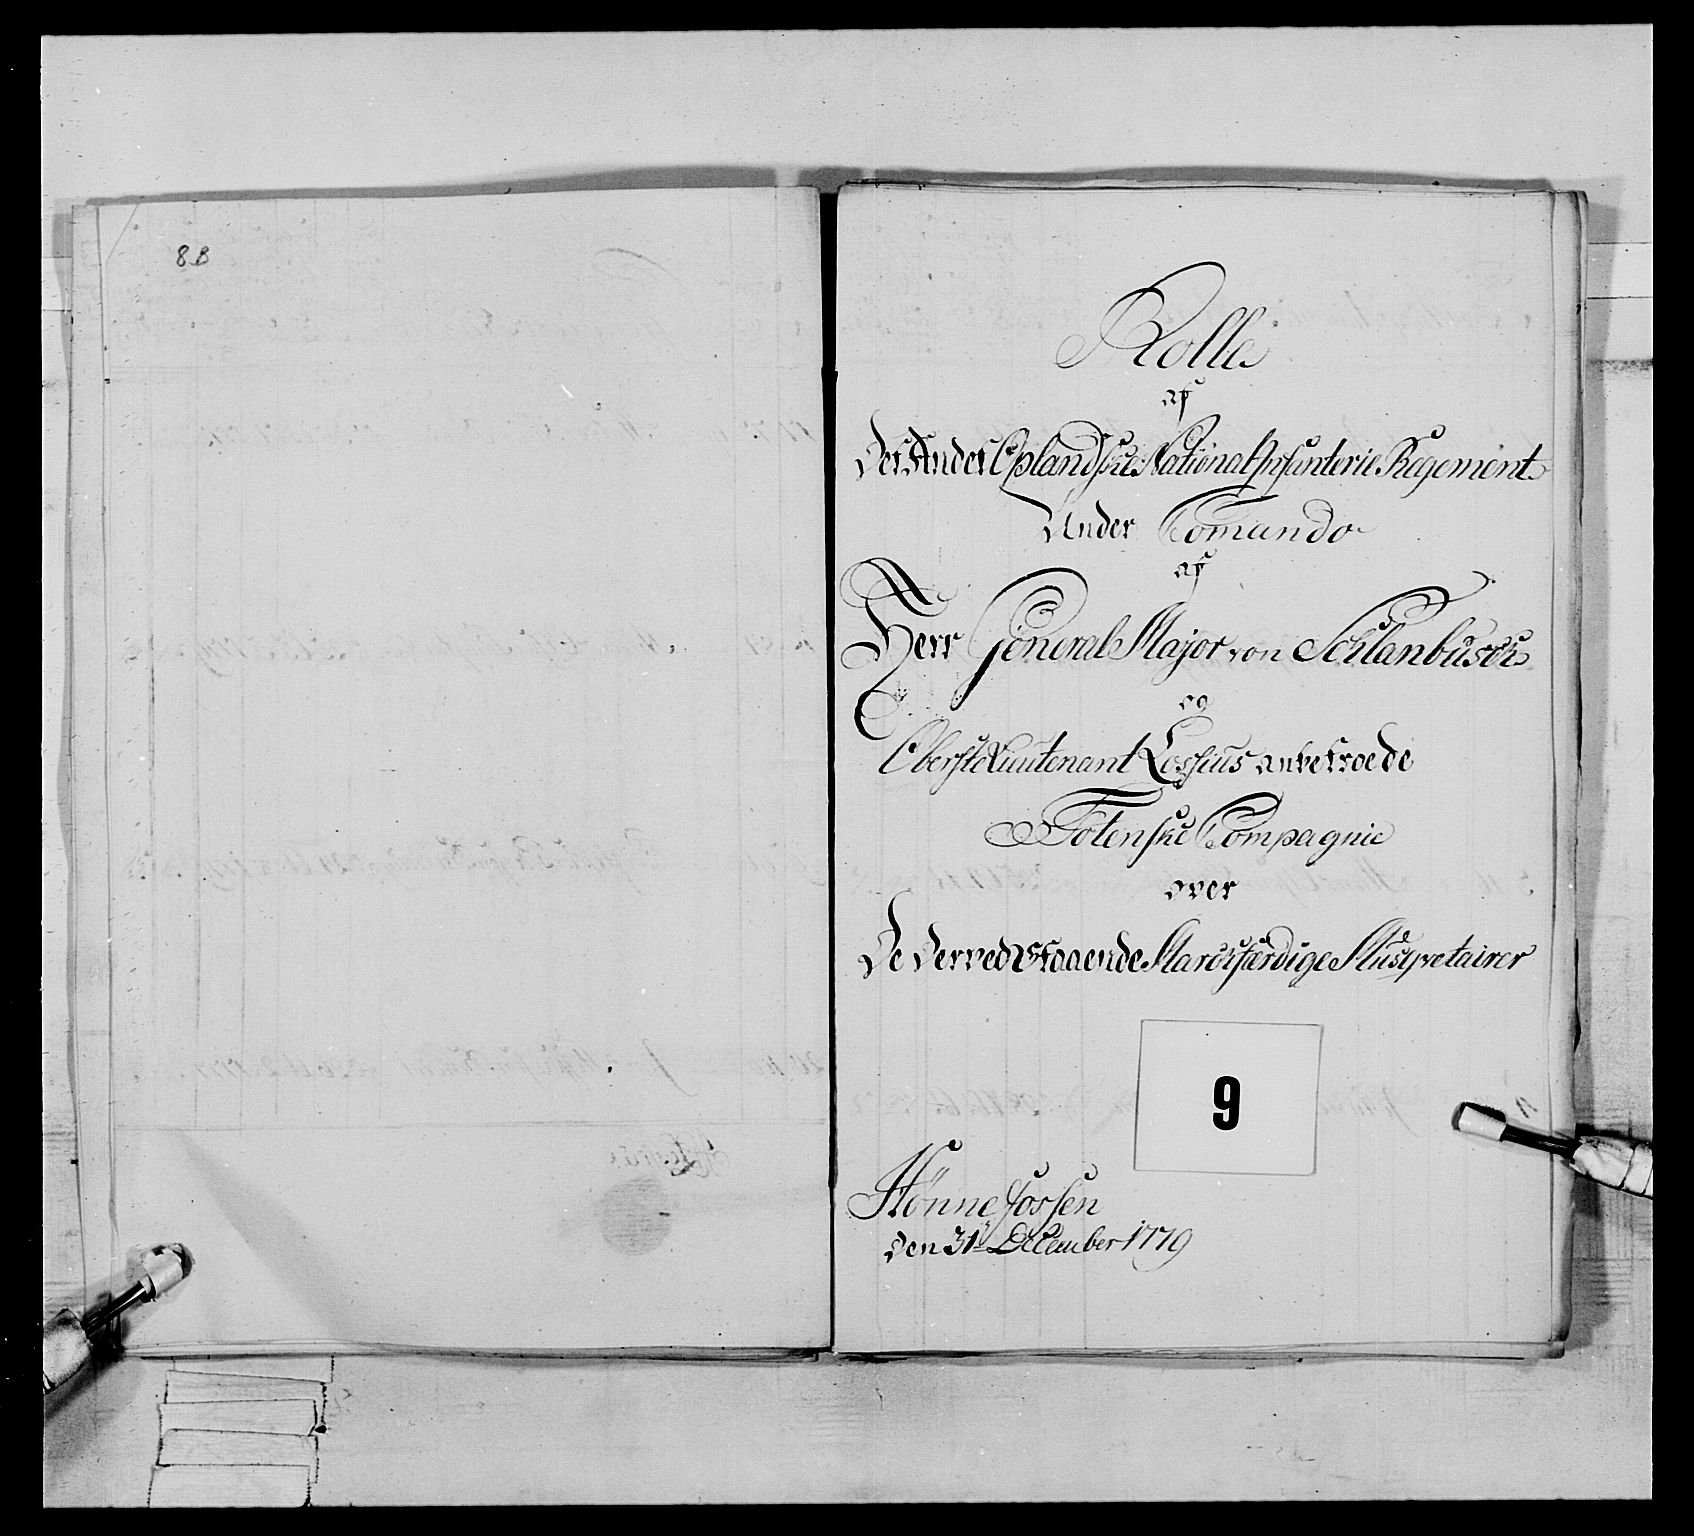 8B
Rolle
af
Det Andet Oplandske National Infanterie Regement
Under Comando
af
Herr General Major von Schlanbusch
og
Oberste Lieutenant Lossius anbetroede
Totenske Compagnie
over
De derved staaende Marchfærdige Musqvetairer
9
Hönnefossen
den 31te December 1779